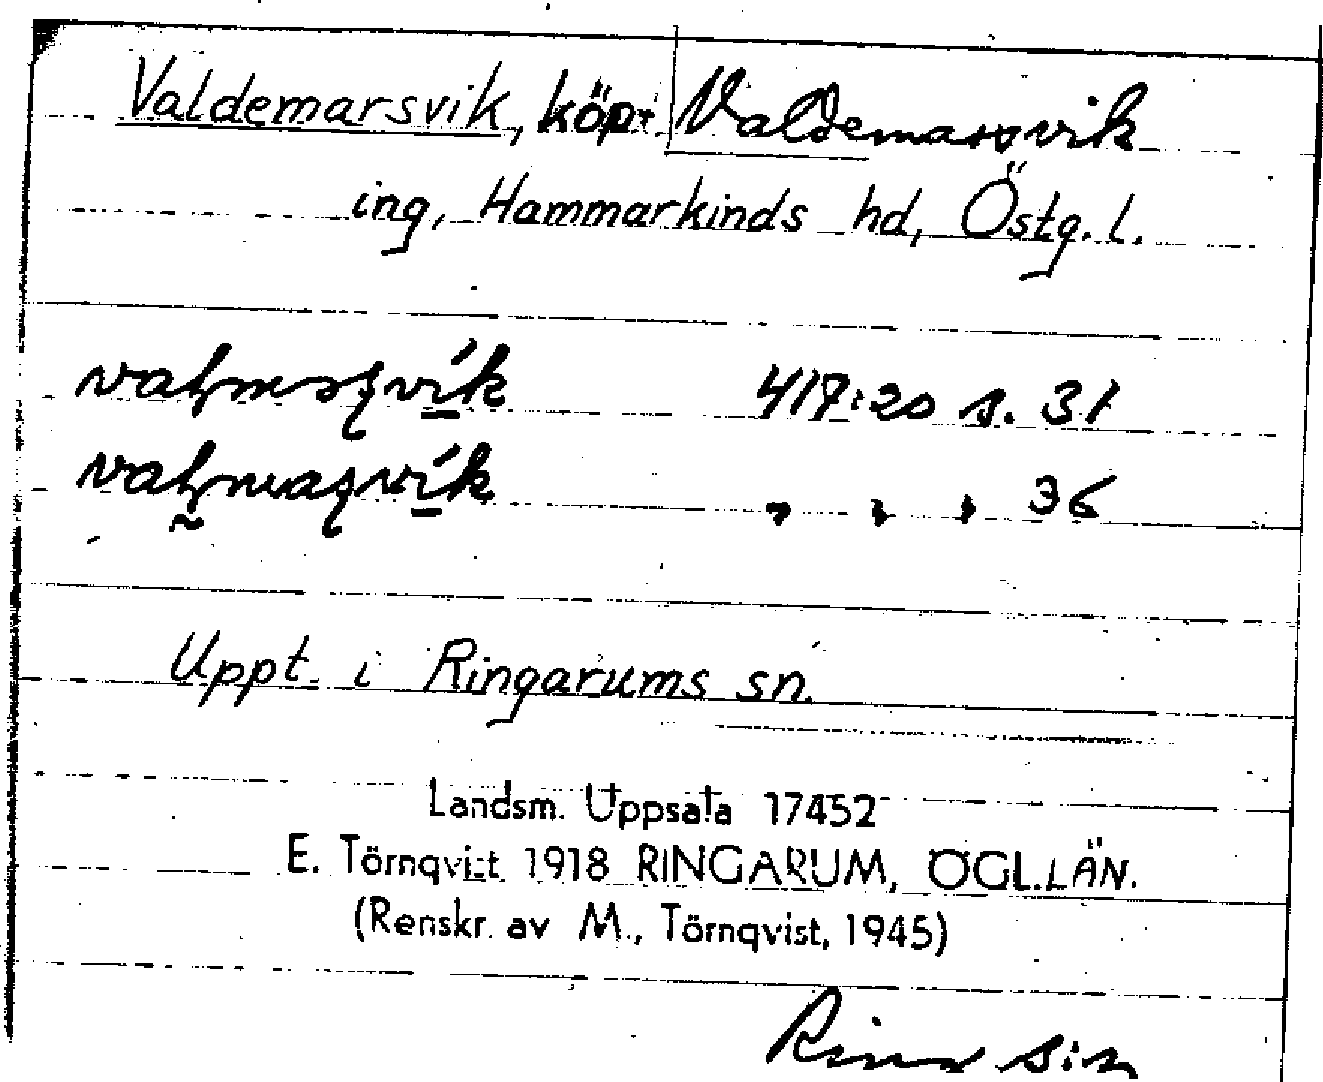 Valdemarsvik, köp. Valdemarsvik
ing, Hammarkinds hd, Östg. l.
417:20 s. 31
" " " 36
Uppt. i Ringarums sn.
Landsm. Uppsala 17452
E. Törnqvist 1918 RINGARUM, ÖGL.LÄN.
(Renskr. av M., Törnqvist, 1945)